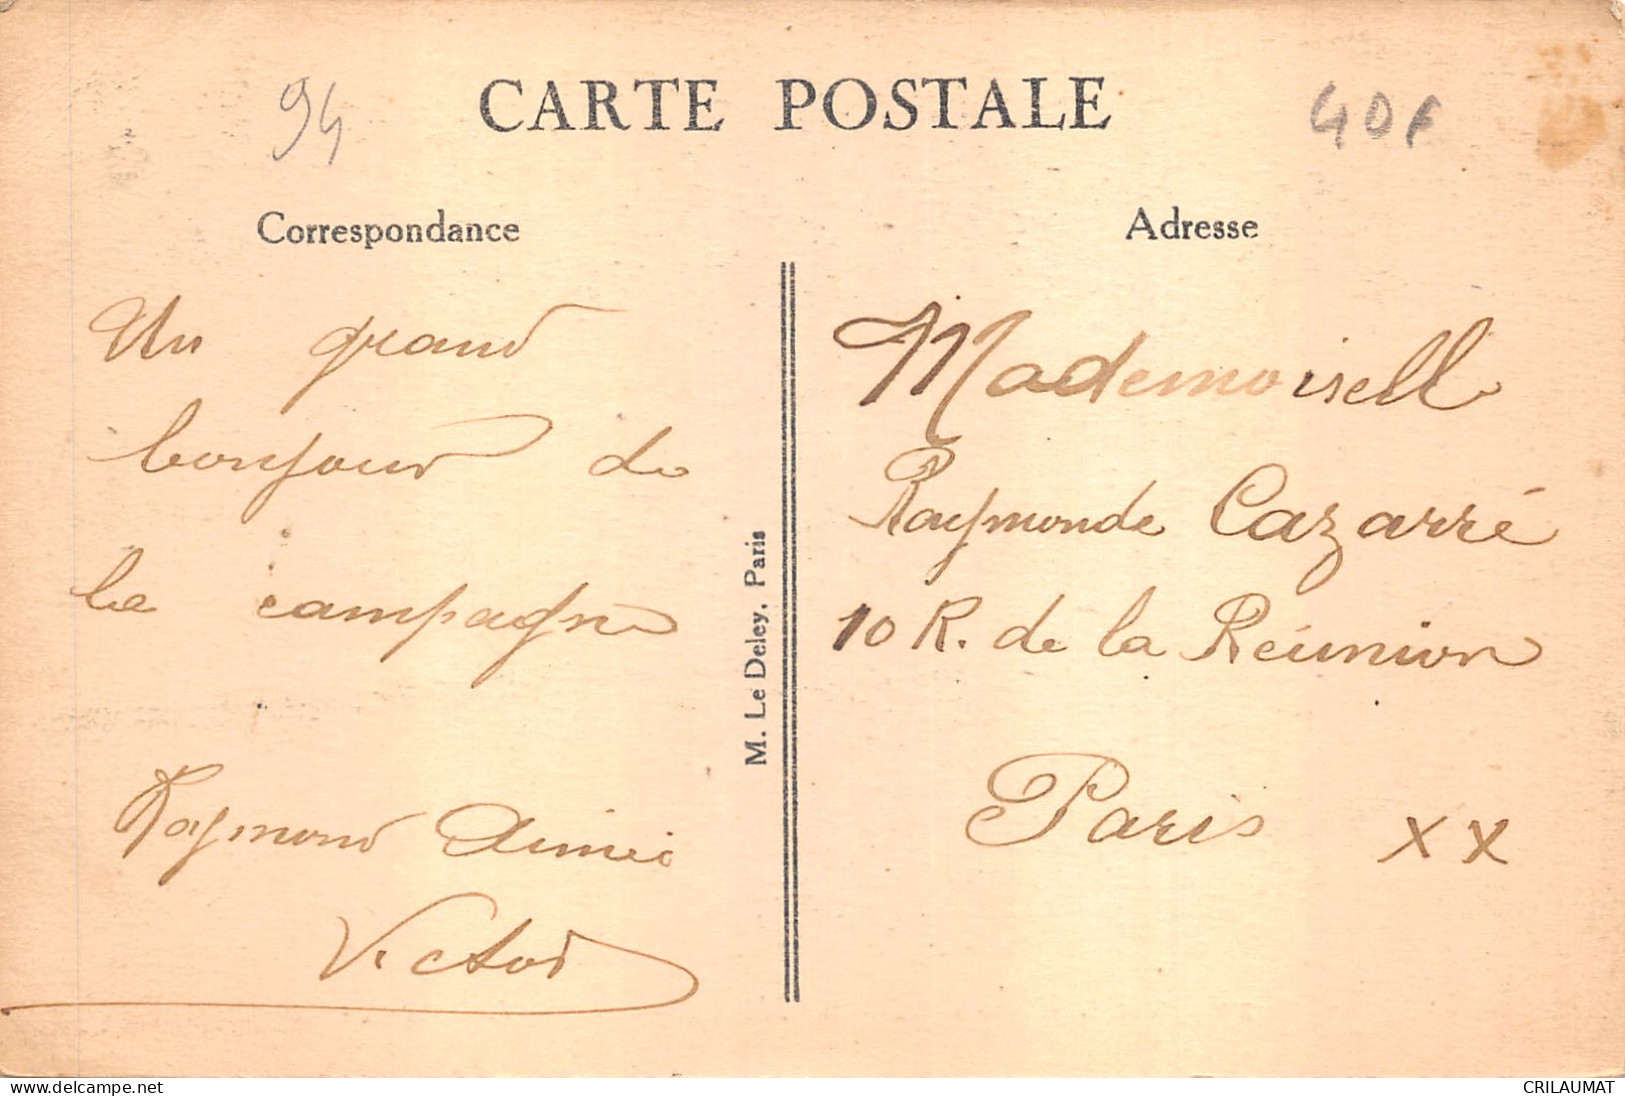 94
CARTE POSTALE
40F
Correspondance
Adresse
Un grand
bonjour de
la campagne
Raymond Aimée
Victor
M. Le Deley, Paris
Mademoiselle
Raymonde Cazarré
10 R. de la Réunion
Paris XX
www.delcampe.net
CRILAUMAT